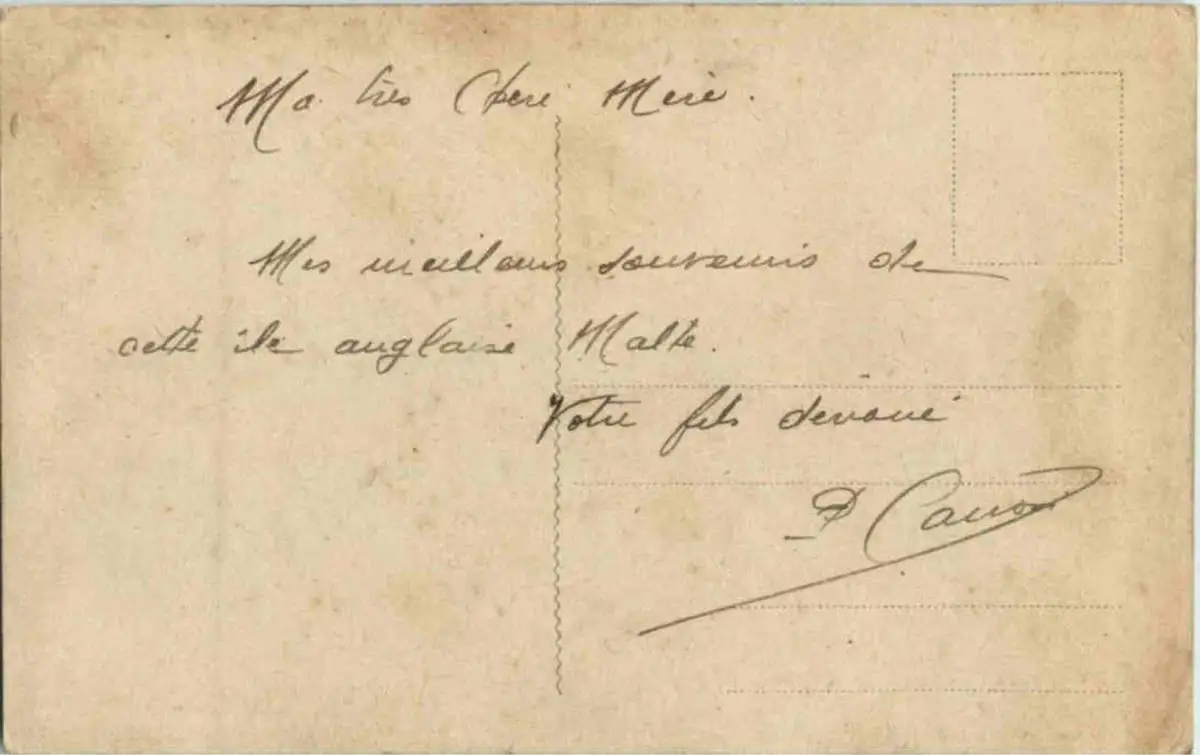 Ma très Chère Mère.
Mes meilleurs souvenirs de
cette île anglaise Malte.
Votre fils dévoué